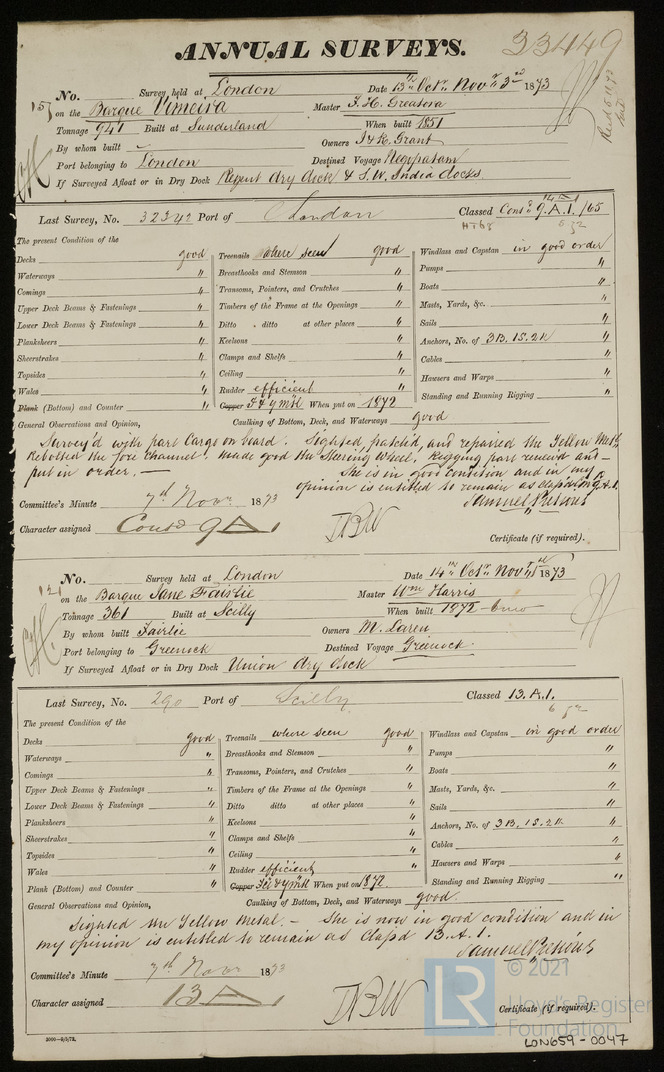 ANNUAL SURVEYS. 33449
No. Survey held at London Date 13th Octr. Novr 3rd 1873
15 on the Barque Vimeira Master J. H. Greatorex
Tonnage 941 Built at Sunderland When built 1851
By whom built — Owners I & R. Grant
Port belonging to London Destined Voyage Negapatam
If Surveyed Afloat or in Dry Dock Regent dry dock & S.W. India docks
Last Survey, No. 32342 Port of London Classed Contd 9.A.1./65
The present Condition of the
Decks good Treenails where seen good Windlass and Capstan in good order
Waterways " Breasthooks and Stemson " Pumps "
Comings " Transoms, Pointers, and Crutches " Boats "
Upper Deck Beams & Fastenings " Timbers of the Frame at the Openings " Masts, Yards, &c. "
Lower Deck Beams & Fastenings " Ditto ditto at other places " Sails "
Planksheers " Keelsons " Anchors, No. of 3B. 1S. 2K "
Sheerstrakes " Clamps and Shelfs " Cables "
Topsides " Ceiling " Hawsers and Warps "
Wales " Rudder efficient Standing and Running Rigging "
Plank (Bottom) and Counter " Copper F & YM'l When put on 1872
General Observations and Opinion, Caulking of Bottom, Deck, and Waterways good
Survey'd with part Cargo on board. Sighted, patched, and repaired the Yellow Metl,
Rebolted the fore channel. made good the Steering Wheel, Rigging part renew'd and
put in order. — She is in good condition and in my
opinion is entitled to remain as Class'd 9.A.1.
Committee's Minute 7th Novr 1873
Character assigned Contd 9 A 1 Certificate (if required).
No. Survey held at London Date 14th Octr. Novr 1st 1873
121 on the Barque Jane Fairlie Master Wm Harris
Tonnage 361 Built at Scilly When built 1872
By whom built Fairlie Owners M. Laren
Port belonging to Greenock Destined Voyage Greenock
If Surveyed Afloat or in Dry Dock Union dry dock
Last Survey, No. 290 Port of Scilly Classed 13.A.1.
The present Condition of the
Decks good Treenails where seen good Windlass and Capstan in good order
Waterways " Breasthooks and Stemson " Pumps "
Comings " Transoms, Pointers, and Crutches " Boats "
Upper Deck Beams & Fastenings " Timbers of the Frame at the Openings " Masts, Yards, &c. "
Lower Deck Beams & Fastenings " Ditto ditto at other places " Sails "
Planksheers " Keelsons " Anchors, No. of 3B. 1S. 2K. "
Sheerstrakes " Clamps and Shelfs " Cables "
Topsides " Ceiling " Hawsers and Warps "
Wales " Rudder efficient Standing and Running Rigging "
Plank (Bottom) and Counter " Copper Fe & YM'l When put on 1872.
General Observations and Opinion, Caulking of Bottom, Deck, and Waterways good.
Sighted the Yellow Metal. — She is now in good condition and in
my opinion is entitled to remain as Class'd 13.A.1.
Committee's Minute 7th Novr 1873
Character assigned 13 A 1 Certificate (if required).
LR © 2021
Lloyd's Register
Foundation
LON659-0047